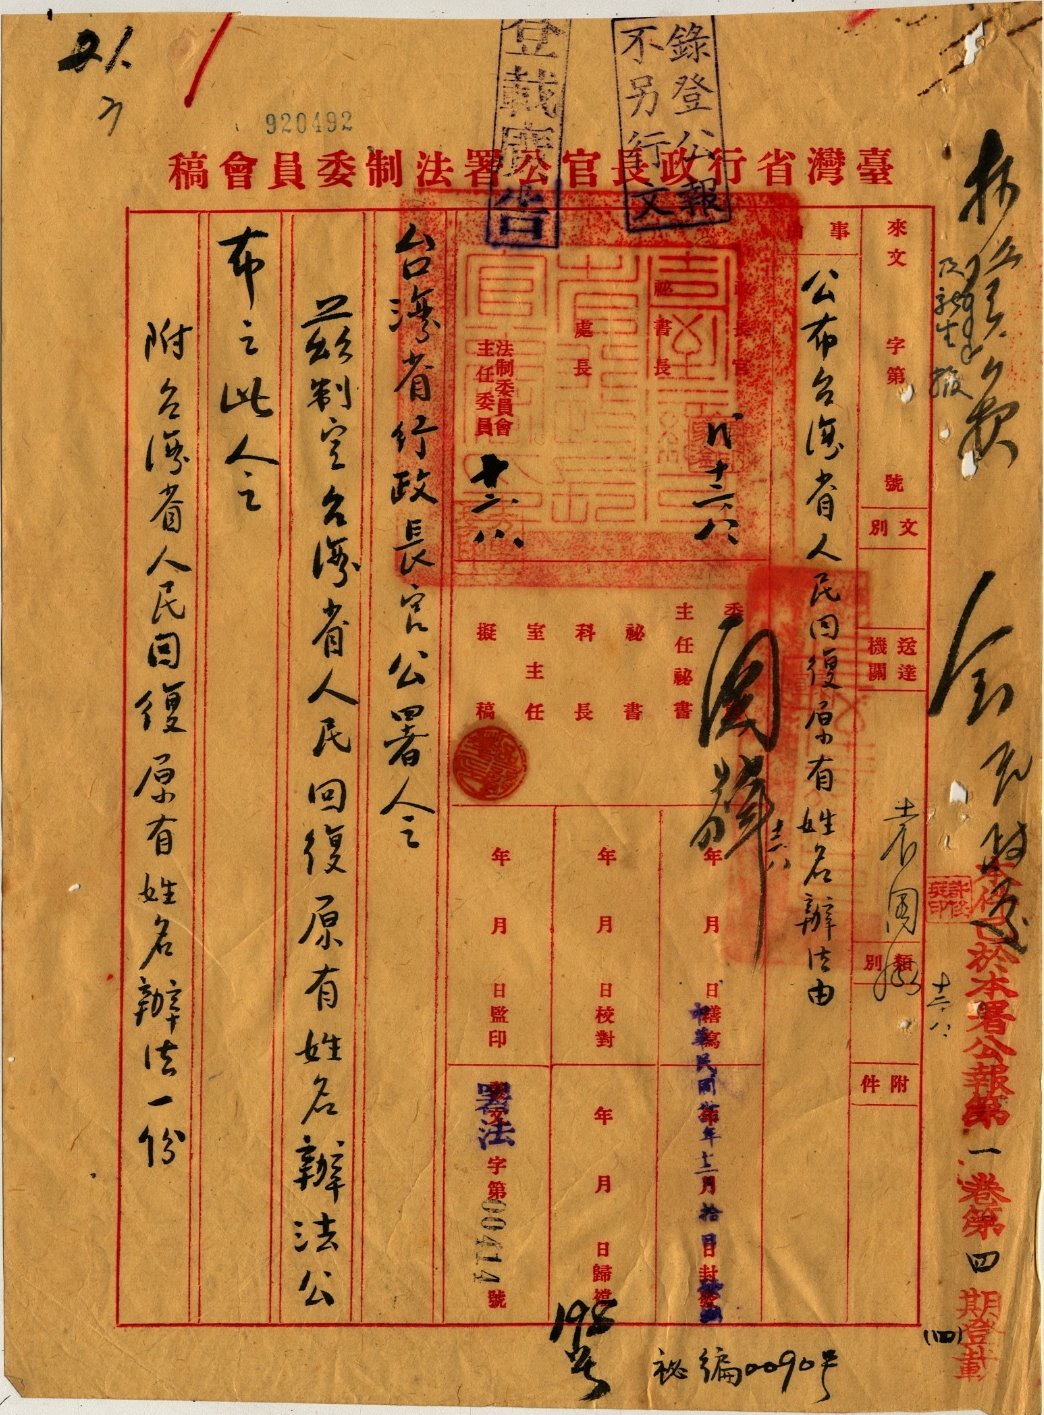 21.
920492
登載廣告
錄登公報
不另行文
臺灣省行政長官公署法制委員會稿
來文 字第 號
文別
送達機關
類別
附件
事由
公布台灣省人民回復原有姓名辦法由
長官
秘書長
處長
法制委員會
主任委員
十二、八
主任秘書
秘書
科長
室主任
擬稿
十二、八
年 月 日繕寫
年 月 日校對
年 月 日監印
中華民國 年十二月拾日封發
年 月 日歸檔
署法
字第00414號
台灣省行政長官公署令
茲制定台灣省人民回復原有姓名辦法公
布之此令
附台灣省人民回復原有姓名辦法一份
及新生報
十二、八
本件已於本署公報第一卷第四期登載
(四)
198
秘編0090号